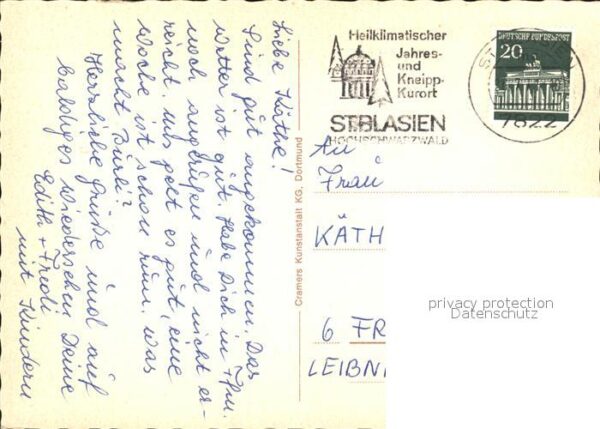 Liebe Käthe!
Sind gut angekommen. Das
Wetter ist gut. Habe Dich in Ffm.
noch angerufen und nicht er-
reicht. Uns geht es gut, eine
Woche ist schon rum. Was
macht Burli?
Herzliche Grüße und auf
baldiges Wiedersehen Deine
Edith + Fredi
mit Kindern
Cramers Kunstanstalt KG, Dortmund
Heilklimatischer
Jahres-
und
Kneipp-
Kurort
ST.BLASIEN
HOCHSCHWARZWALD
DEUTSCHE BUNDESPOST
20
7822
An
Frau
KÄTH
6 FR
LEIBNI
privacy protection
Datenschutz